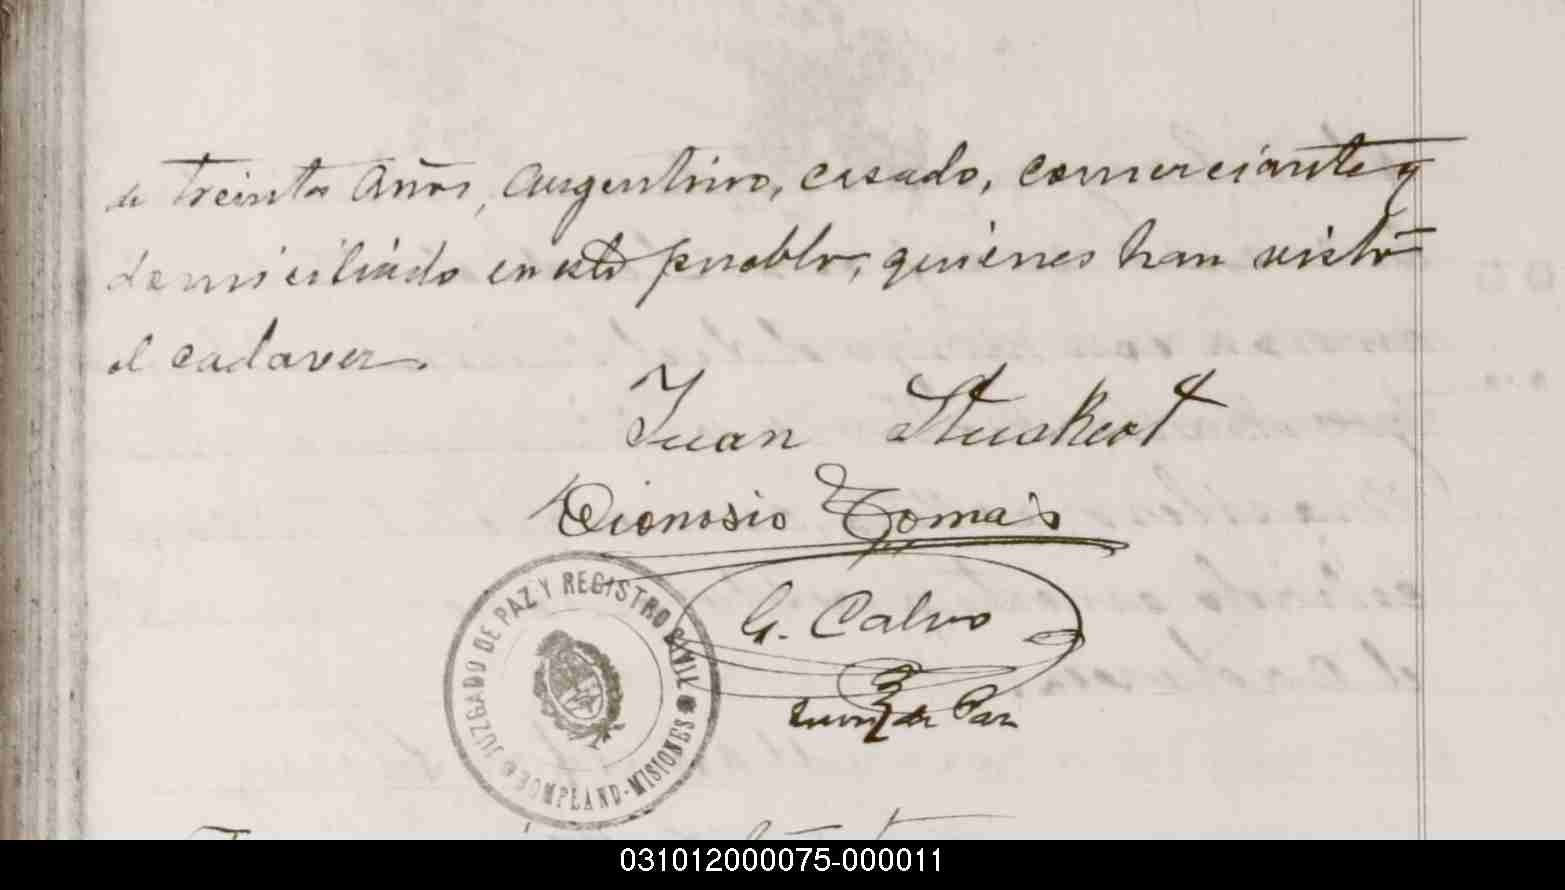 de treinta años, argentino, casado, comerciante y
domiciliado en este pueblo, quienes han visto
el cadaver.
Juan Stuskert
Dionosio Tomas
G. Calvo
Juez de Paz
JUZGADO DE PAZ Y REGISTRO CIVIL
BOMPLAND-MISIONES
031012000075-000011